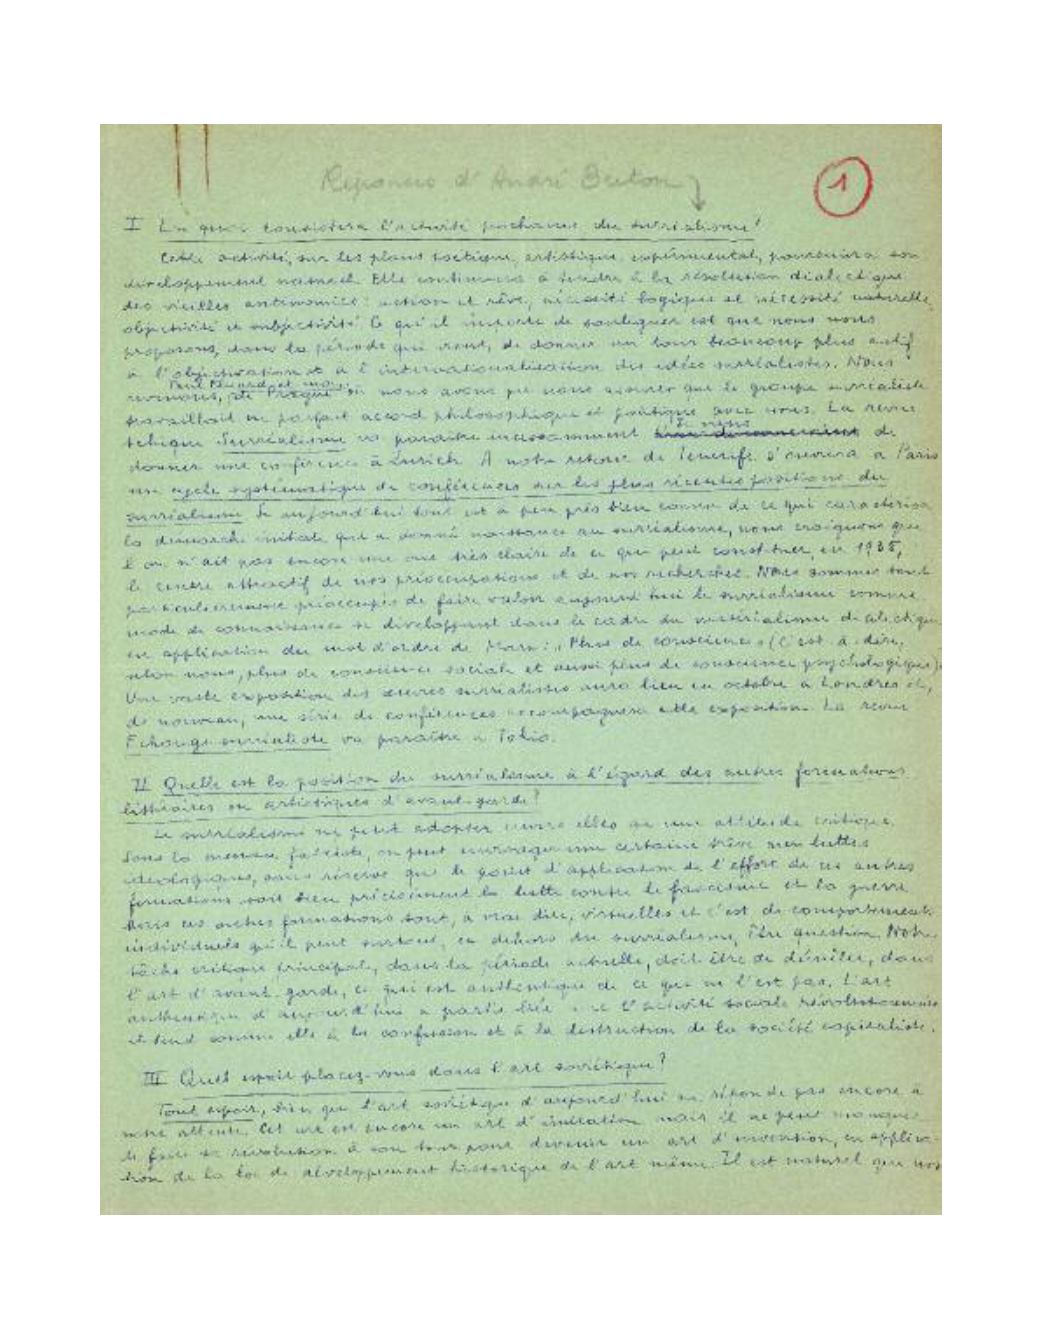 Réponses d'André Breton
1
I En quoi consistera l'activité prochaine du surréalisme?
Cette activité, sur les plans poétique, artistique, expérimental, poursuivra son
développement naturel. Elle continuera à tendre à la résolution dialectique
des vieilles antinomies: action et rêve, nécessité logique et nécessité naturelle,
objectivité et subjectivité. Ce qu'il importe de souligner est que nous nous
proposons, dans la période qui vient, de donner un tour beaucoup plus actif
à l'objectivation et à l'internationalisation des idées surréalistes. Nous
Paul Eluard et moi,
revenons, de Prague où nous avons pu nous assurer que le groupe surréaliste
travaillait en parfait accord philosophique et politique avec nous. La revue
tchèque Surréalisme va paraître incessamment de
donner une conférence à Zurich. A notre retour de Tenerife s'ouvrira à Paris
un cycle systématique de conférences sur les plus récentes positions du
surréalisme. Si aujourd'hui tout est à peu près bien connu de ce qui caractérisa
la démarche initiale qui a donné naissance au surréalisme, nous craignons que
l'on n'ait pas encore une vue très claire de ce que peut constituer, en 1935,
le centre attractif de nos préoccupations et de nos recherches. Nous sommes tout
particulièrement préoccupés de faire valoir aujourd'hui le surréalisme comme
mode de connaissance se développant dans le cadre du matérialisme dialectique
en application du mot d'ordre de Marx: "Plus de conscience" (c'est-à-dire,
selon nous, plus de conscience sociale et aussi plus de conscience psychologique).
Une vaste exposition des œuvres surréalistes aura lieu en octobre à Londres et,
de nouveau, une série de conférences accompagnera cette exposition. La revue
Echange surréaliste va paraître à Tokio.
II Quelle est la position du surréalisme à l'égard des autres formations
littéraires ou artistiques d'avant-garde?
Le surréalisme ne peut adopter envers elles qu'une attitude critique.
Sous la menace fasciste, on peut envisager une certaine trêve aux luttes
idéologiques, sous réserve que le point d'application de l'effort de ces autres
formations soit bien précisément la lutte contre le fascisme et la guerre.
Mais ces autres formations sont, à vrai dire, virtuelles et c'est de comportements
individuels qu'il peut surtout, en dehors du surréalisme, être question. Notre
tâche critique principale, dans la période actuelle, doit être de démêler, dans
l'art d'avant-garde, ce qui est authentique de ce qui ne l'est pas. L'art
authentique d'aujourd'hui a partie liée avec l'activité sociale révolutionnaire:
il tend comme elle à la confusion et à la destruction de la société capitaliste.
III Quel espoir placez-vous dans l'art soviétique?
Tout espoir, bien que l'art soviétique d'aujourd'hui ne réponde pas encore à
notre attente. Cet art est encore un art d'imitation mais il ne peut manquer
de faire sa révolution à son tour pour devenir un art d'invention, en applica-
tion de la loi de développement historique de l'art même. Il est naturel que nos